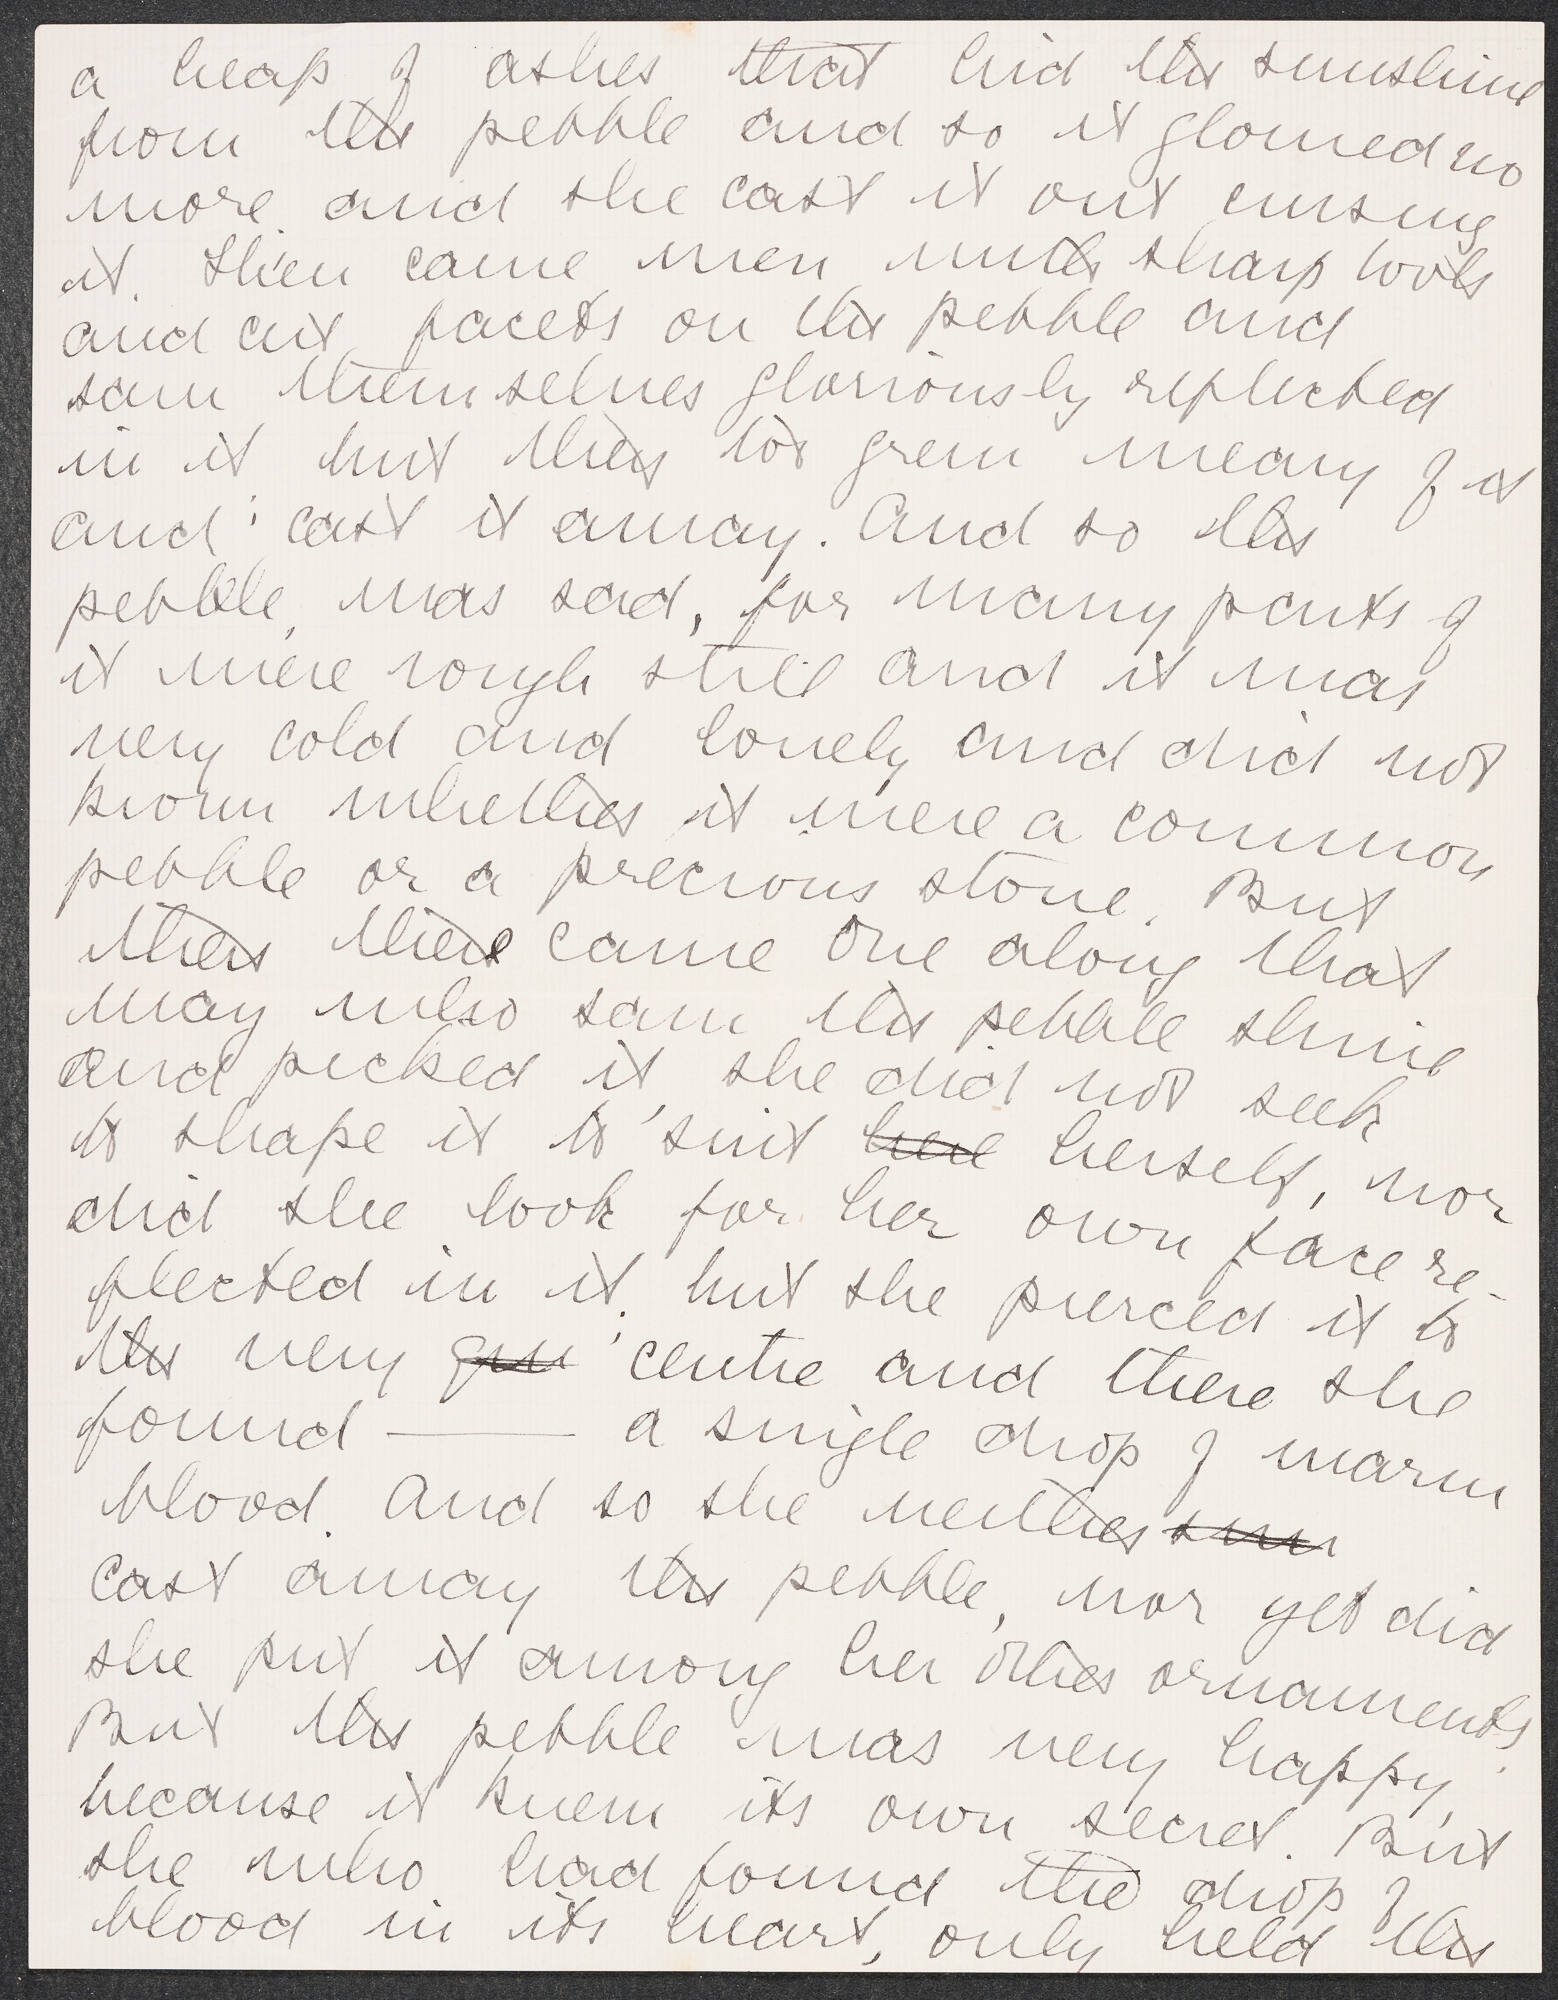 a heap of ashes that hid the sunshine
from the pebble and so it glowed no
more and she cast it out cursing
it. Then came men with sharp tools
and cut facets on the pebble and
saw themselves gloriously reflected
in it but they too grew weary of it
and cast it away. And so the
pebble, was sad, for many parts of
it were rough still and it was
very cold and lonely and did not
know whether it were a common
pebble or a precious stone. But
then there came one along that
way who saw the pebble shine
and picked it, she did not seek
to shape it to suit here herself, nor
did she look for her own face re-
flected in it, but she pierced it to
the very centre and there she
found — a single drop of warm
blood. And so she neither
cast away the pebble, nor yet did
she put it among her other ornaments
But the pebble was very happy,
because it knew its own secret. But
she who had found the drop of
blood in its heart, only held the